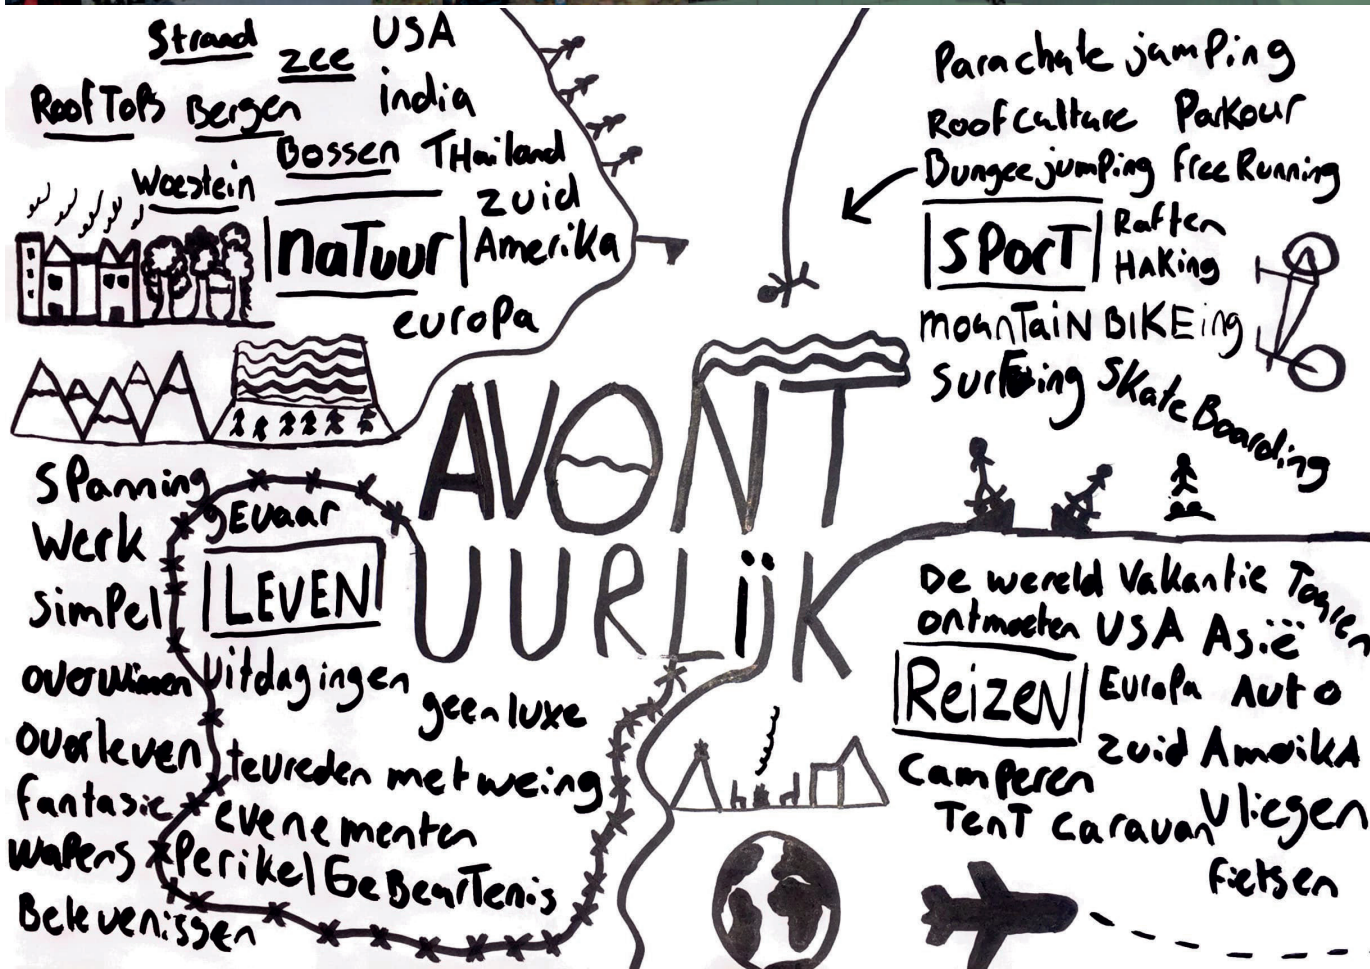 Strand
zee
USA
RoofTops Bergen
india
Bossen THailand
Woestein
zuid
naTuur
AmeriKa
europa
Parachute jamping
Roofculture Parkour
Bungeejumping free Running
SPorT
Raften
HaKing
mounTaiN BIKEing
surfing SKateBoarding
AVONT
UURLijK
SPanning
gEvaar
Werk
LEVEN
SimPel
overwinnen uitdagingen
geen luxe
overleven
tevreden met weing
fantasie
evenementen
wapens
Perikel GeBeurTenis
Belevenissen
De wereld Vakantie Touren
ontmoeten USA Asië
ReizeN
Europa Auto
zuid AmerikA
Camperen
TenT Caravan Vliegen
fietsen